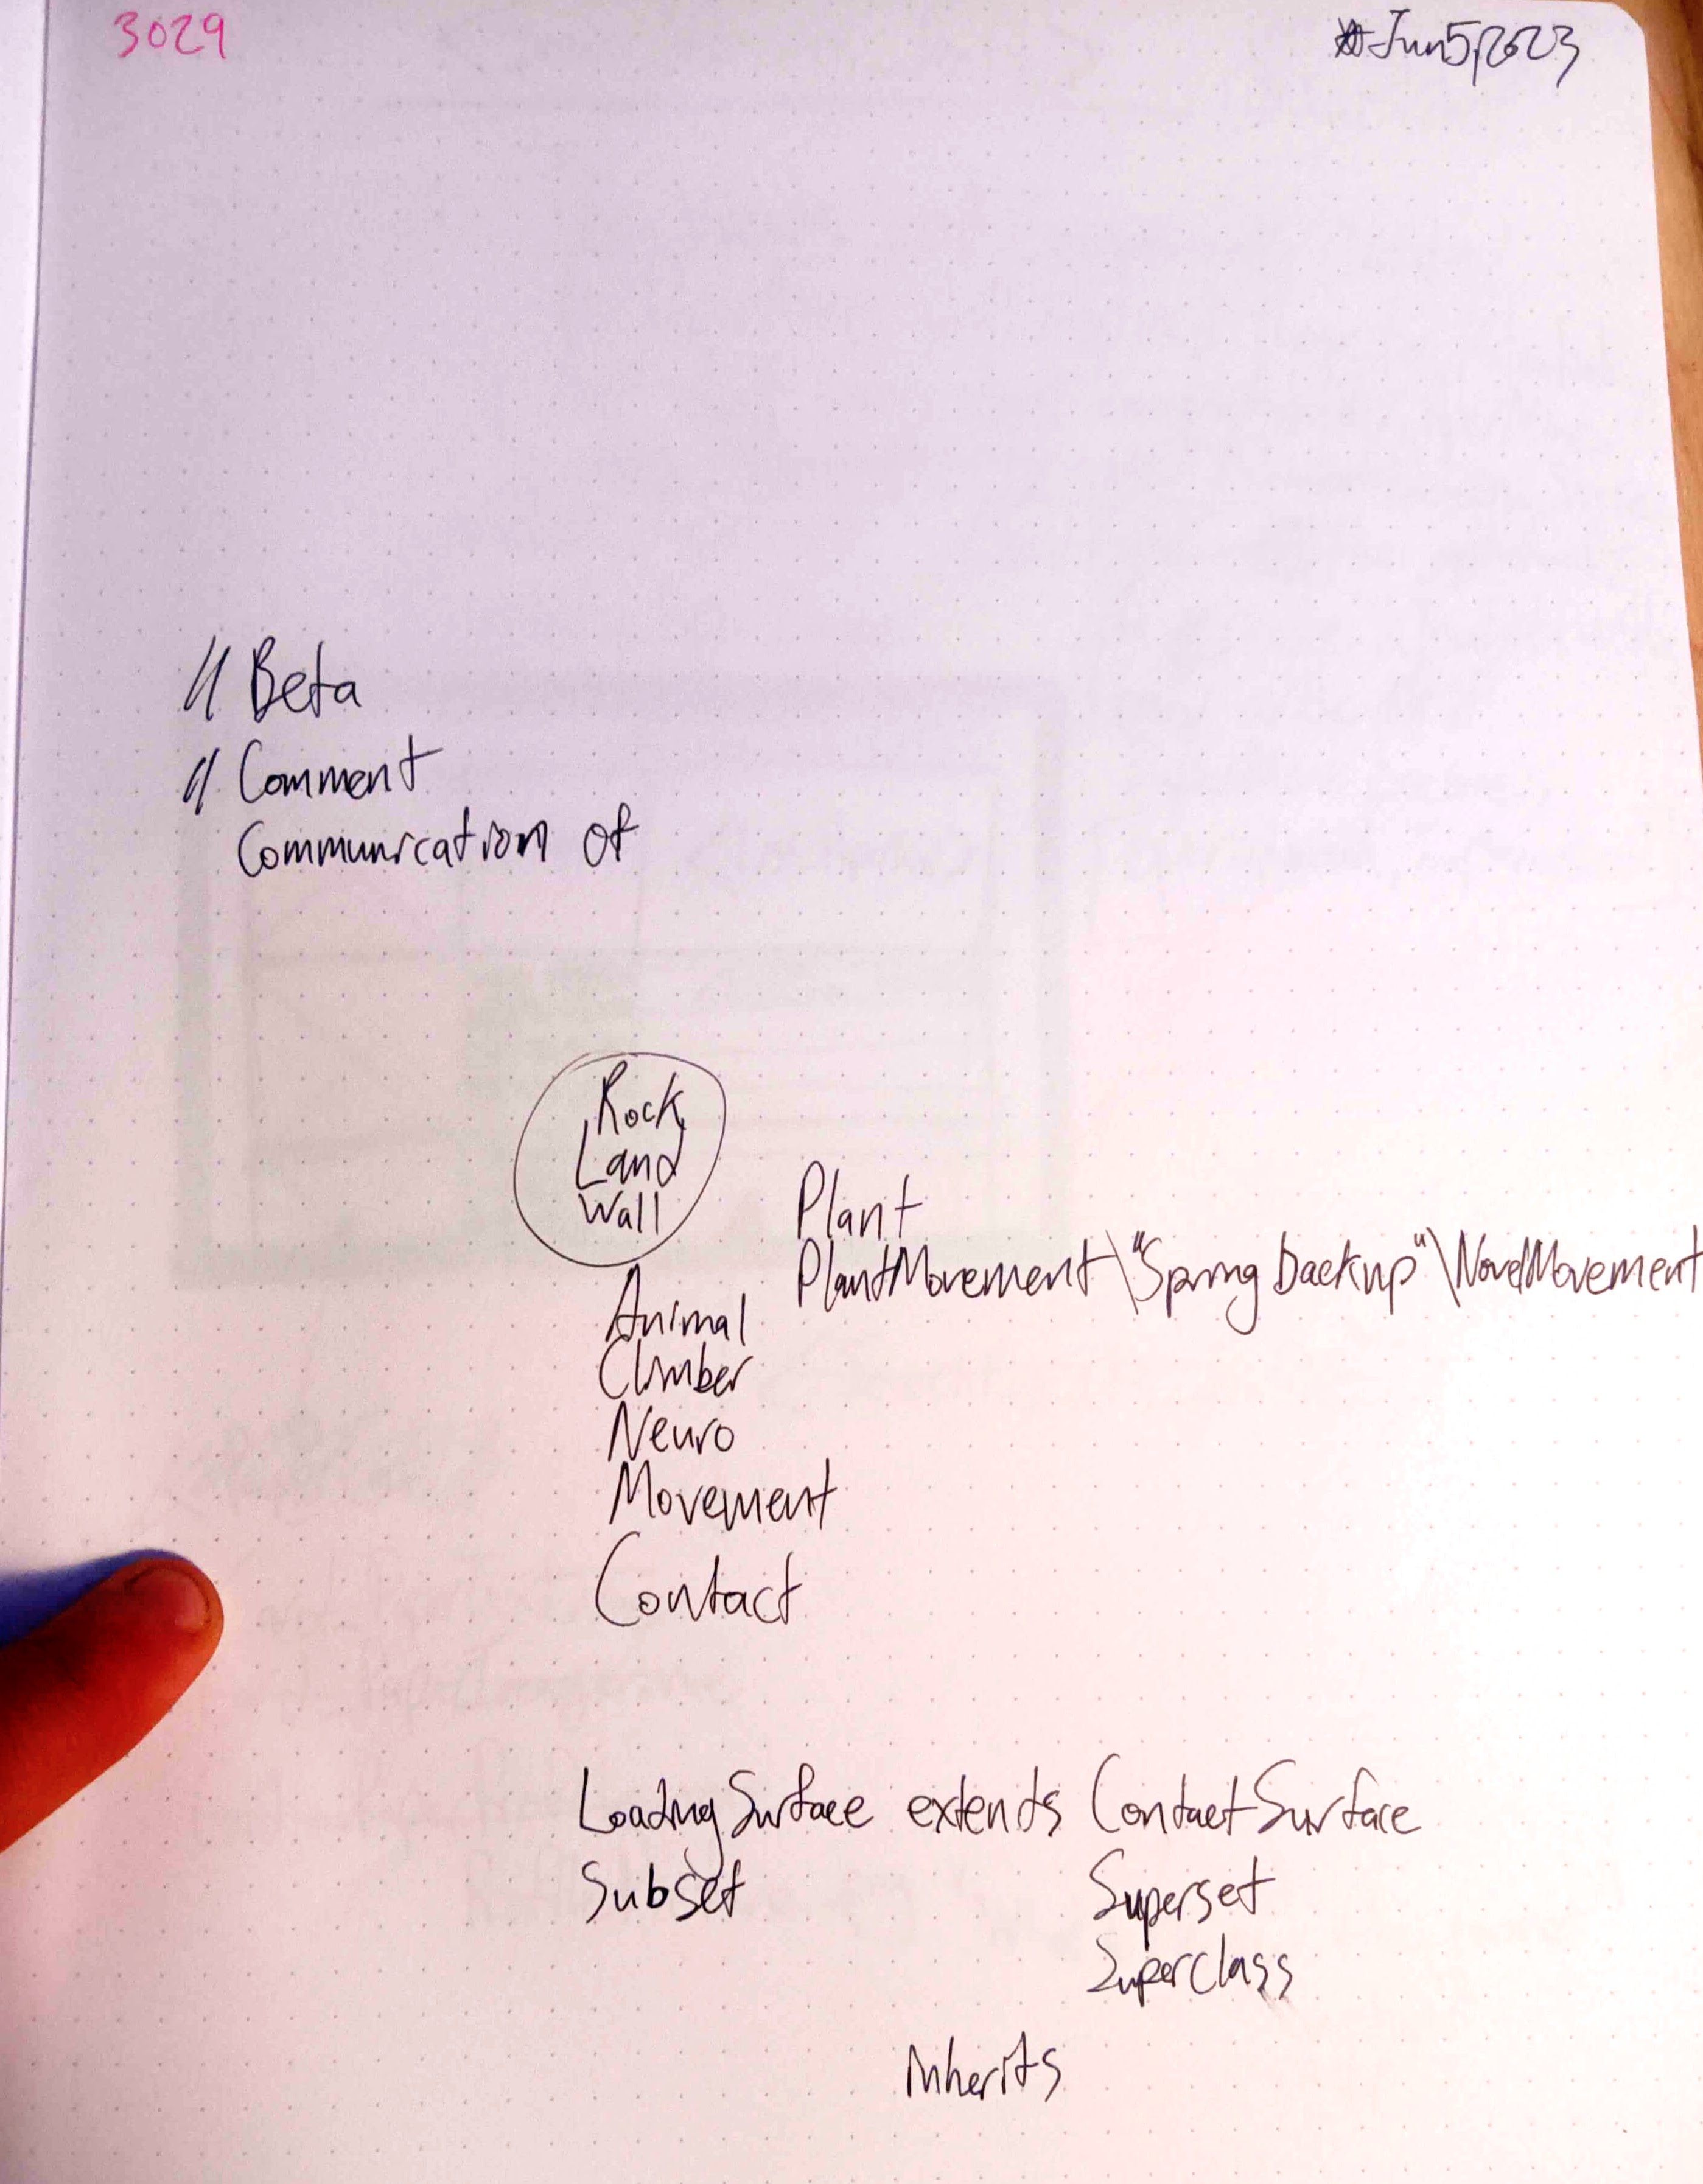 3029
#Jun5,2023
// Beta
// Comment
Communication of
Rock
Land
Wall
Plant
PlantMovement\"Spring back up"\NovelMovement
Animal
Climber
Neuro
Movement
Contact
LoadingSurface extends ContactSurface
Subset Superset
Superclass
inherits